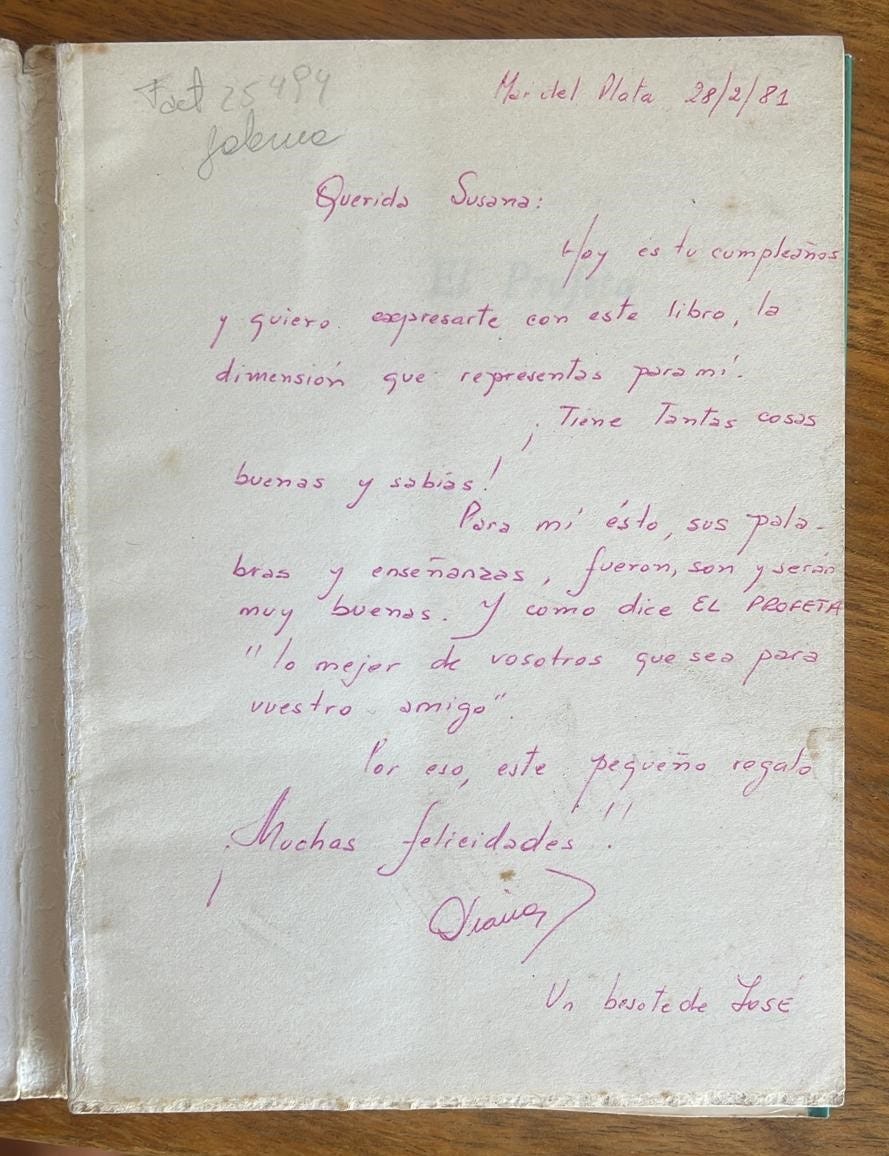 Fact 25494
Galerna
Mar del Plata 28/2/81
Querida Susana:
Hoy es tu cumpleaños
El Profeta
y quiero expresarte con este libro, la
dimensión que representas para mí.
¡Tiene Tantas cosas
buenas y sabias!
Para mí ésto, sus pala-
bras y enseñanzas, fueron, son y serán
muy buenas. Y como dice EL PROFETA
"lo mejor de vosotros que sea para
vuestro amigo".
Por eso, este pequeño regalo
¡Muchas felicidades!!
Diana
Un besote de José